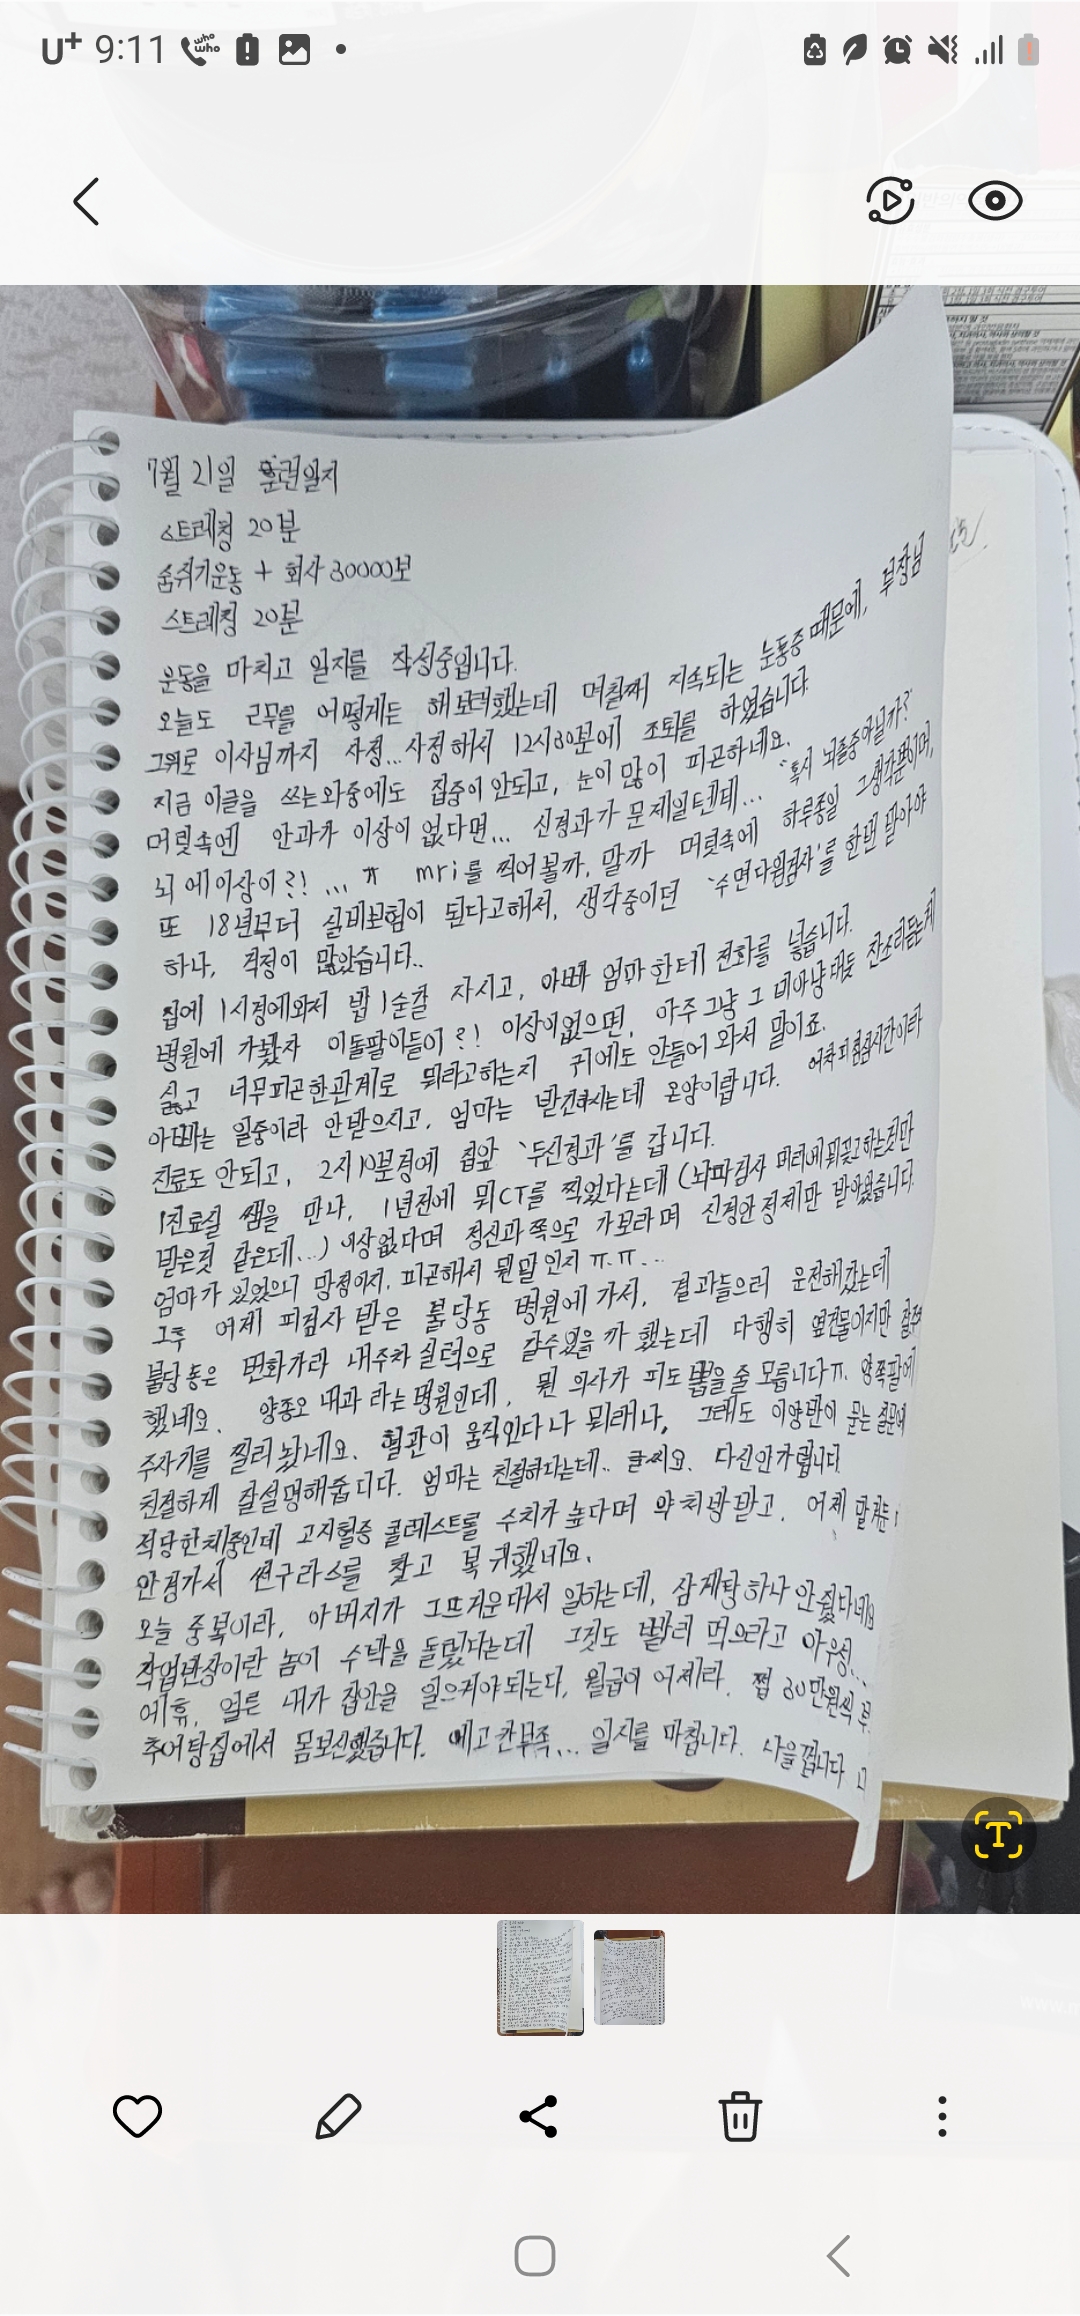 U+ 9:11 who who
7월 21일 훈련일지
스트레칭 20분
숨쉬기운동 + 회사 30000보
스트레칭 20분
운동을 마치고 일지를 작성중입니다.
오늘도 근무를 어떻게든 해보려했는데 며칠째 지속되는 눈통증 때문에, 부장님
그위로 이사님까지 사정...사정해서 12시30분에 조퇴를 하였습니다.
지금 이글을 쓰는와중에도 집중이 안되고, 눈이 많이 피곤하네요.
머릿속엔 안과가 이상이 없다면... 신경과가 문제일텐데... "혹시 뇌졸중아닐까?"
뇌에 이상이?!... ㅠ mri를 찍어볼까, 말까 머릿속에 하루종일 그생각뿐이며,
또 18년부터 실비보험이 된다고해서, 생각중이던 '수면다원검사'를 한번 받아야
하나, 걱정이 많았습니다..
집에 1시경에와서 밥 1순갈 자시고, 아빠 엄마한테 전화를 넣습니다.
병원에 가봤자 이돌팔이들이?! 이상이없으면, 아주 그냥 그 비아냥대듯 잔소리듣는게
싫고 너무피곤한관계로 뭐라고하는지 귀에도 안들어 와서 말이죠.
아빠는 일중이라 안받으시고, 엄마는 받긴하시는데 온양이랍니다. 어차피 점심시간이라
진료도 안되고, 2시10분경에 집앞 '두신경과'를 갑니다.
1진료실 쌤을 만나, 1년전에 뭐CT를 찍었다는데 (뇌파검사 머리에뭐꽂고하는것만
받은것 같은데...) 이상없다며 정신과쪽으로 가보라며 신경안정제만 받아왔습니다.
엄마가 있었으니 망정이지. 피곤해서 뭔말인지 ㅠ.ㅠ...
그후 어제 피검사 받은 불당동 병원에 가서, 결과들으러 운전해갔는데
불당동은 번화가라 내주차실력으로 갈수있을까 했는데 다행히 옆건물이지만 잘주차
했네요. 양종오 내과 라는 병원인데, 뭔 의사가 피도 뽑을줄 모릅니다ㅠ. 양쪽팔에
주사기를 찔러놨네요. 혈관이 움직인다나 뭐래나, 그래도 이양반이 묻는 질문에
친절하게 잘설명해줍디다. 엄마는 친절하다는데.. 글쎄요. 다신안가렵니다
적당한체중인데 고지혈증 콜레스트롤 수치가 높다며 약처방받고, 어제 맡겨둔
안경가서 썬구라스를 찾고 복귀했네요.
오늘 중복이라, 아버지가 그뜨거운데서 일하는데, 삼계탕하나 안줬다네요
작업반장이란 놈이 수박을 돌렸다는데 그것도 빨리 먹으라고 아우성...
에휴, 얼른 내가 집안을 일으켜야되는다, 월급이 어제라. 쩝 30만원씩
추어탕집에서 몸보신했습니다. 에고 칸부족... 일지를 마칩니다.
T